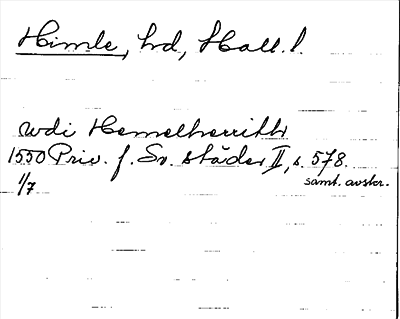 Himle, hd, Hall. l.
wdi Hemelherrith
1550 Priv. f. Sv. städer II, s. 578.
1/7 samt. avskr.